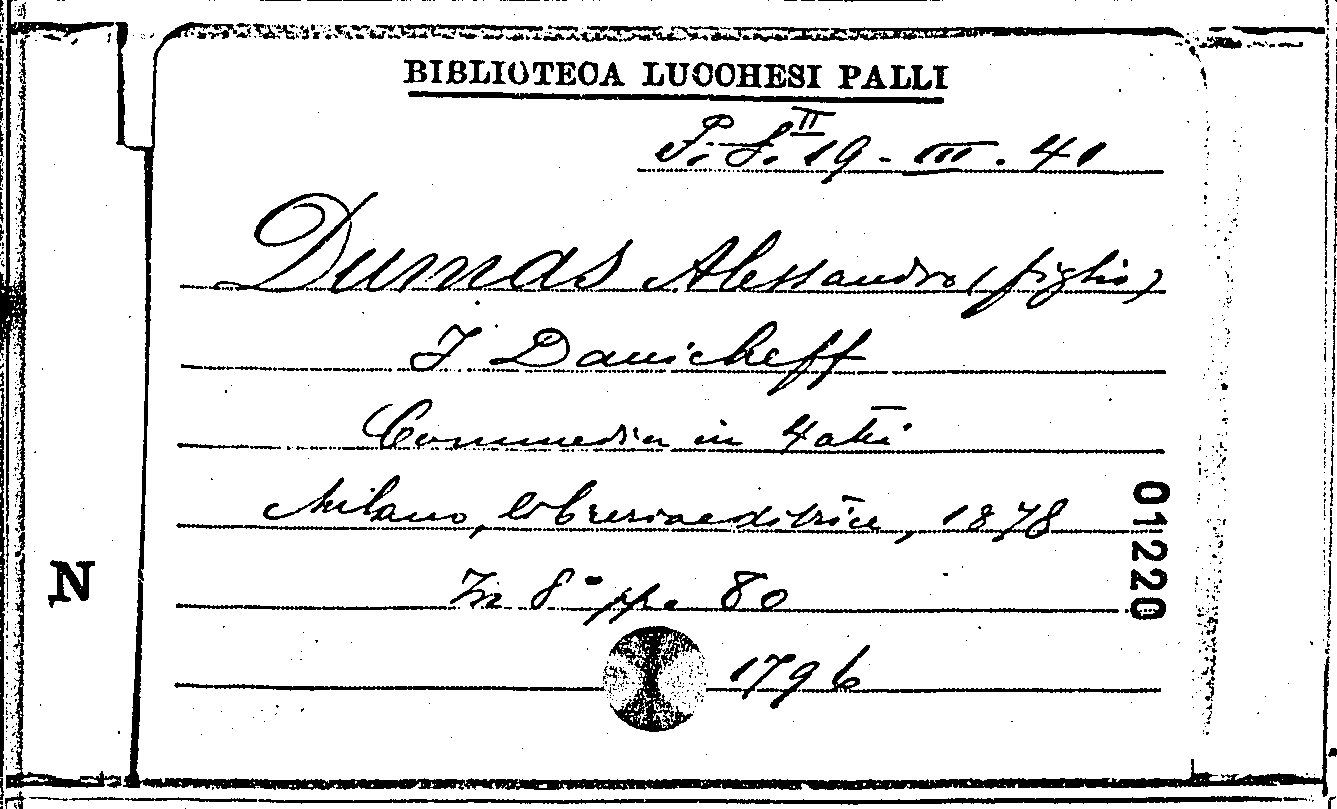 BIBLIOTECA LUCCHESI PALLI
P. S. II 19 - III. 41
Dumas Alessandro (figlio)
I Danicheff
Commedia in 4 atti
Milano, libreria editrice, 1878
In 8° pp. 80
1796
N
01220